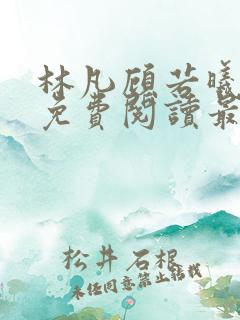 林凡顾若曦
免費閱讀最
松井石根
未经同意禁止转载